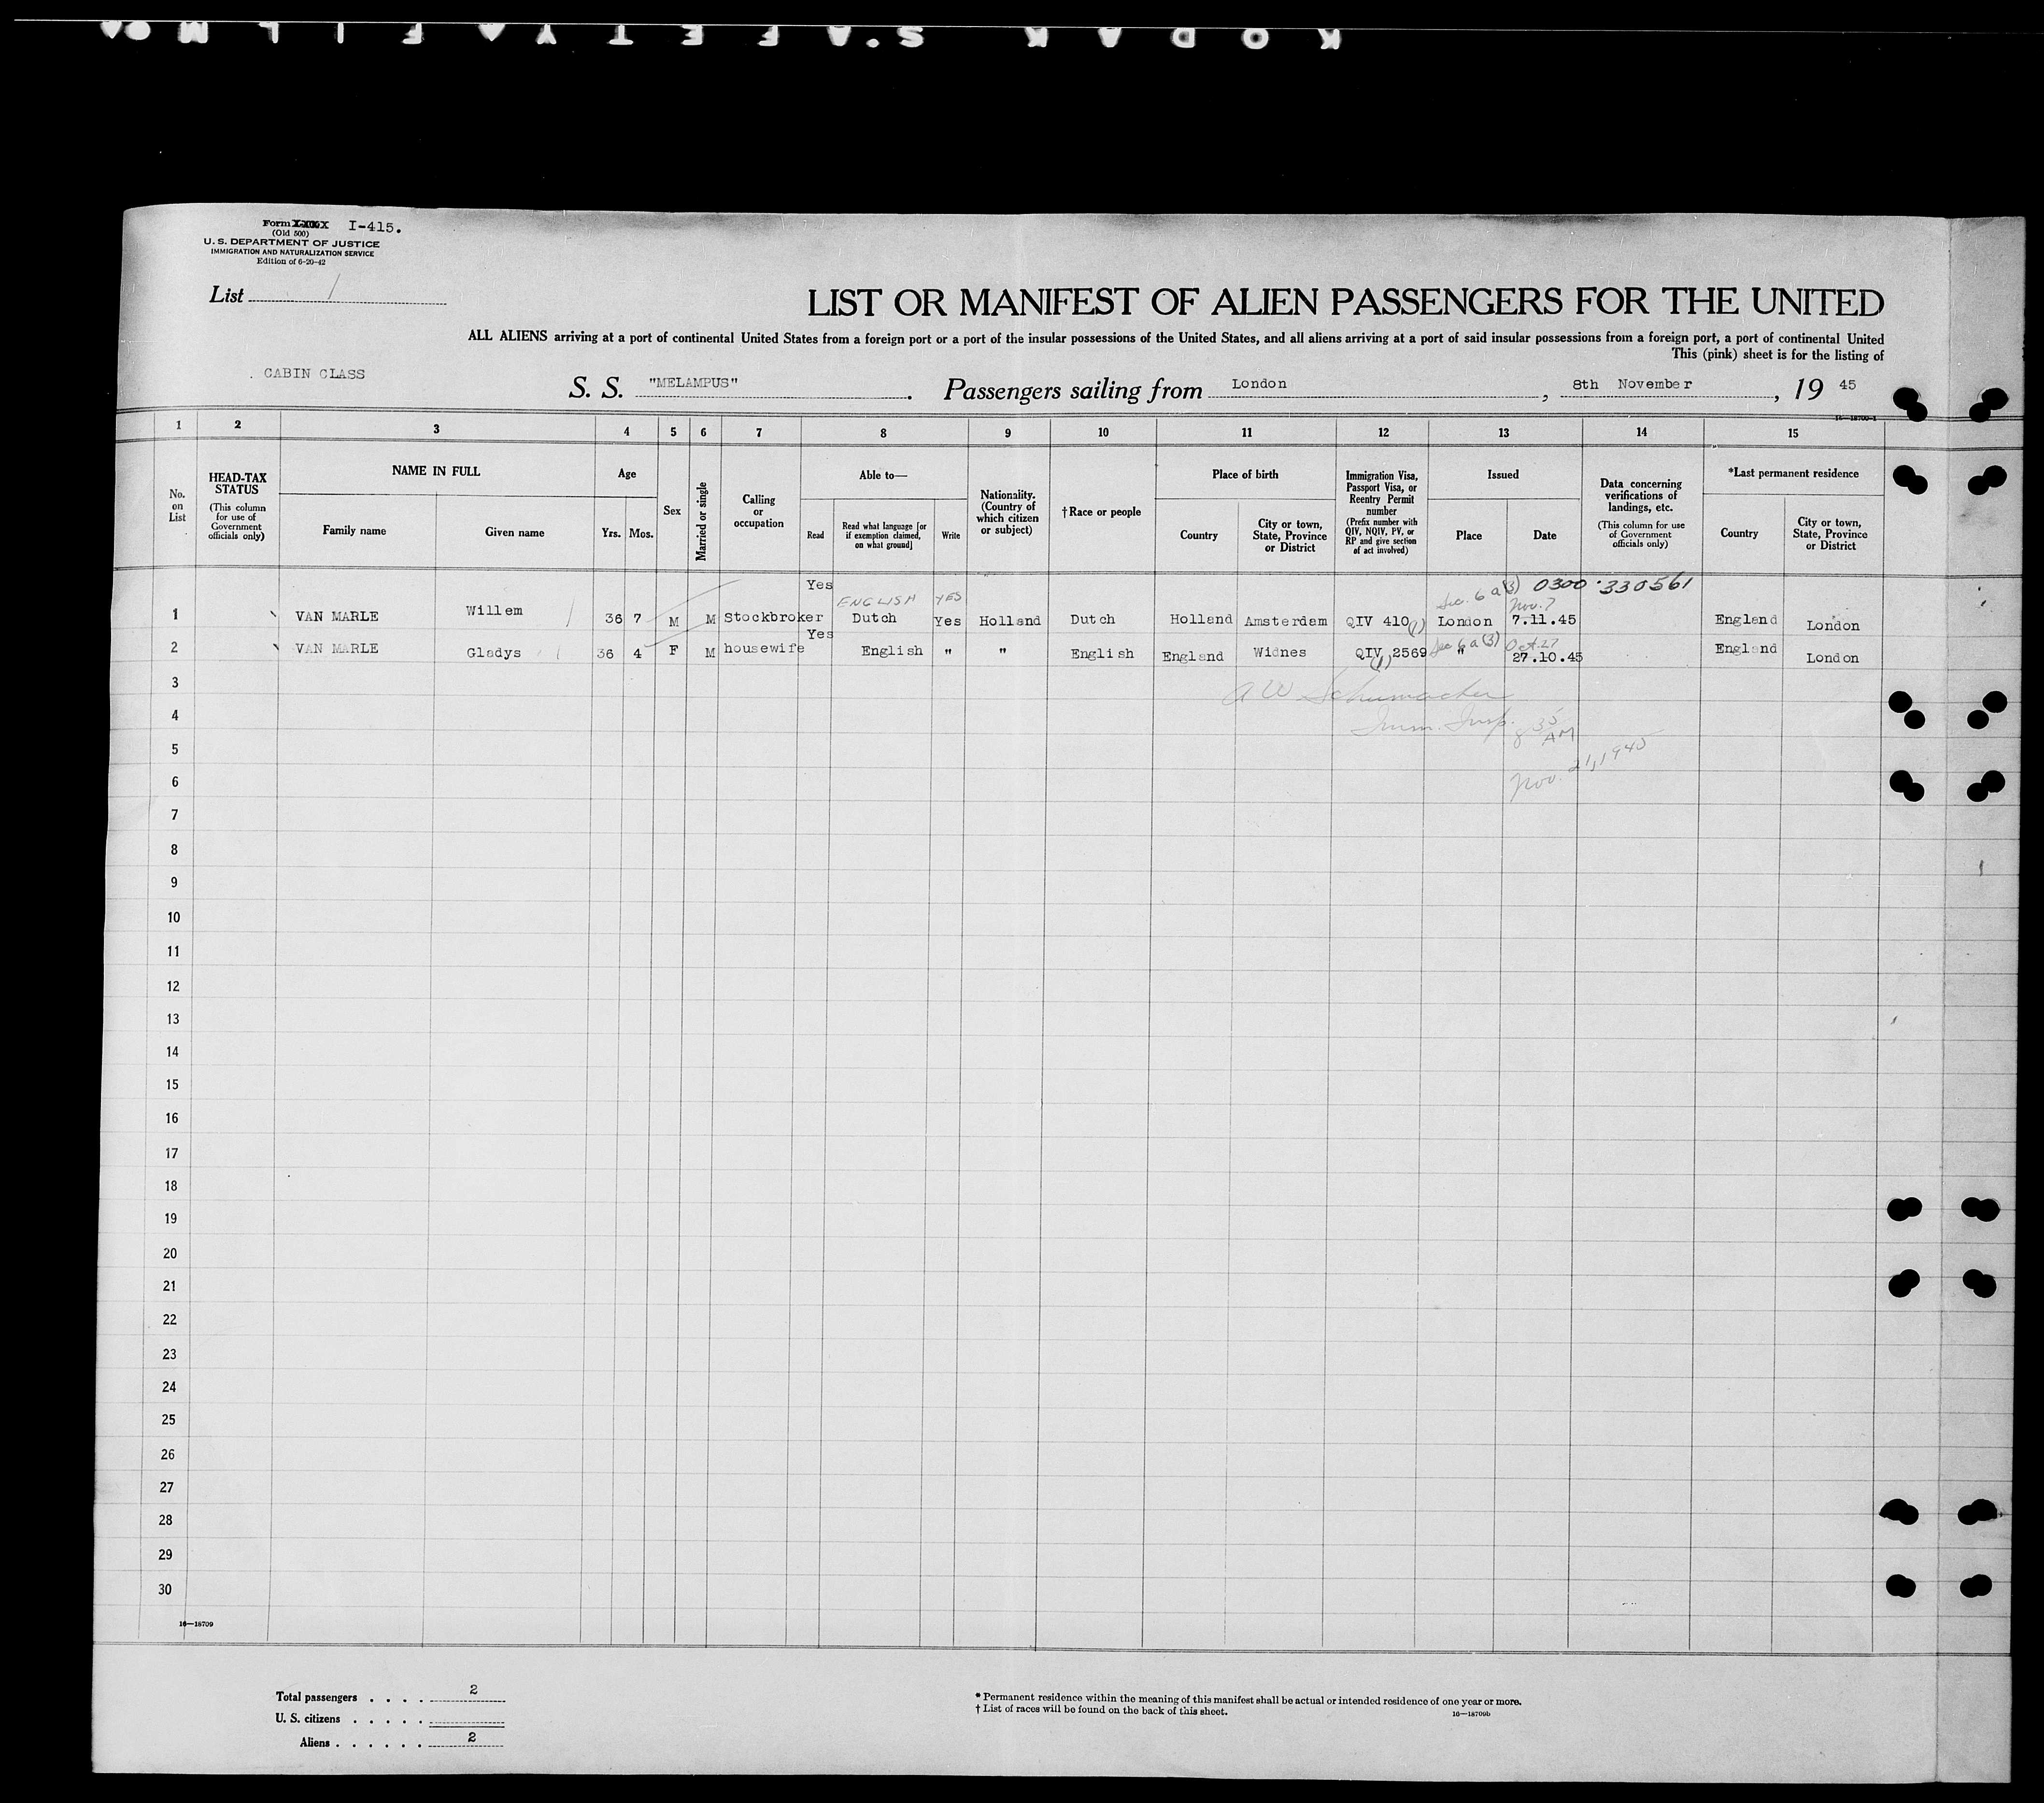 KODAK SAFETY FILM
Form I-415.
(Old 500)
U. S. DEPARTMENT OF JUSTICE
IMMIGRATION AND NATURALIZATION SERVICE
Edition of 6-20-42
List 1
LIST OR MANIFEST OF ALIEN PASSENGERS FOR THE UNITED
ALL ALIENS arriving at a port of continental United States from a foreign port or a port of the insular possessions of the United States, and all aliens arriving at a port of said insular possessions from a foreign port, a port of continental United
This (pink) sheet is for the listing of
CABIN CLASS
S. S. "MELAMPUS". Passengers sailing from London, 8th November, 19 45
1 2 3 4 5 6 7 8 9 10 11 12 13 14 15
No. on List
HEAD-TAX STATUS
(This column for use of Government officials only)
NAME IN FULL
Family name
Given name
Age
Yrs. Mos.
Sex
Married or single
Calling or occupation
Able to—
Read
Read what language [or if exemption claimed, on what ground]
Write
Nationality. (Country of which citizen or subject)
†Race or people
Place of birth
Country
City or town, State, Province or District
Immigration Visa, Passport Visa, or Reentry Permit number
(Prefix number with QIV, NQIV, PV, or RP and give section of act involved)
Issued
Place
Date
Data concerning verifications of landings, etc.
(This column for use of Government officials only)
*Last permanent residence
Country
City or town, State, Province or District
Yes Sec. 6 a (3) 0300·330561
ENGLISH YES Nov. 7
1 VAN MARLE Willem 36 7 M M Stockbroker Dutch Yes Holland Dutch Holland Amsterdam QIV 410 (1) London 7.11.45 England London
Yes Sec 6 a (3) Oct. 27
2 VAN MARLE Gladys 36 4 F M housewife English " " English England Widnes QIV 2569 (1) " 27.10.45 England London
3
A W Schumacher
4
Imm. Insp. 8 35 AM
5
Nov. 21, 1945
6
7
8
9
10
11
12
13
14
15
16
17
18
19
20
21
22
23
24
25
26
27
28
29
30
16—18709
Total passengers . . . . 2
U. S. citizens . . . . .
Aliens . . . . . . 2
* Permanent residence within the meaning of this manifest shall be actual or intended residence of one year or more.
† List of races will be found on the back of this sheet.
16—18709b